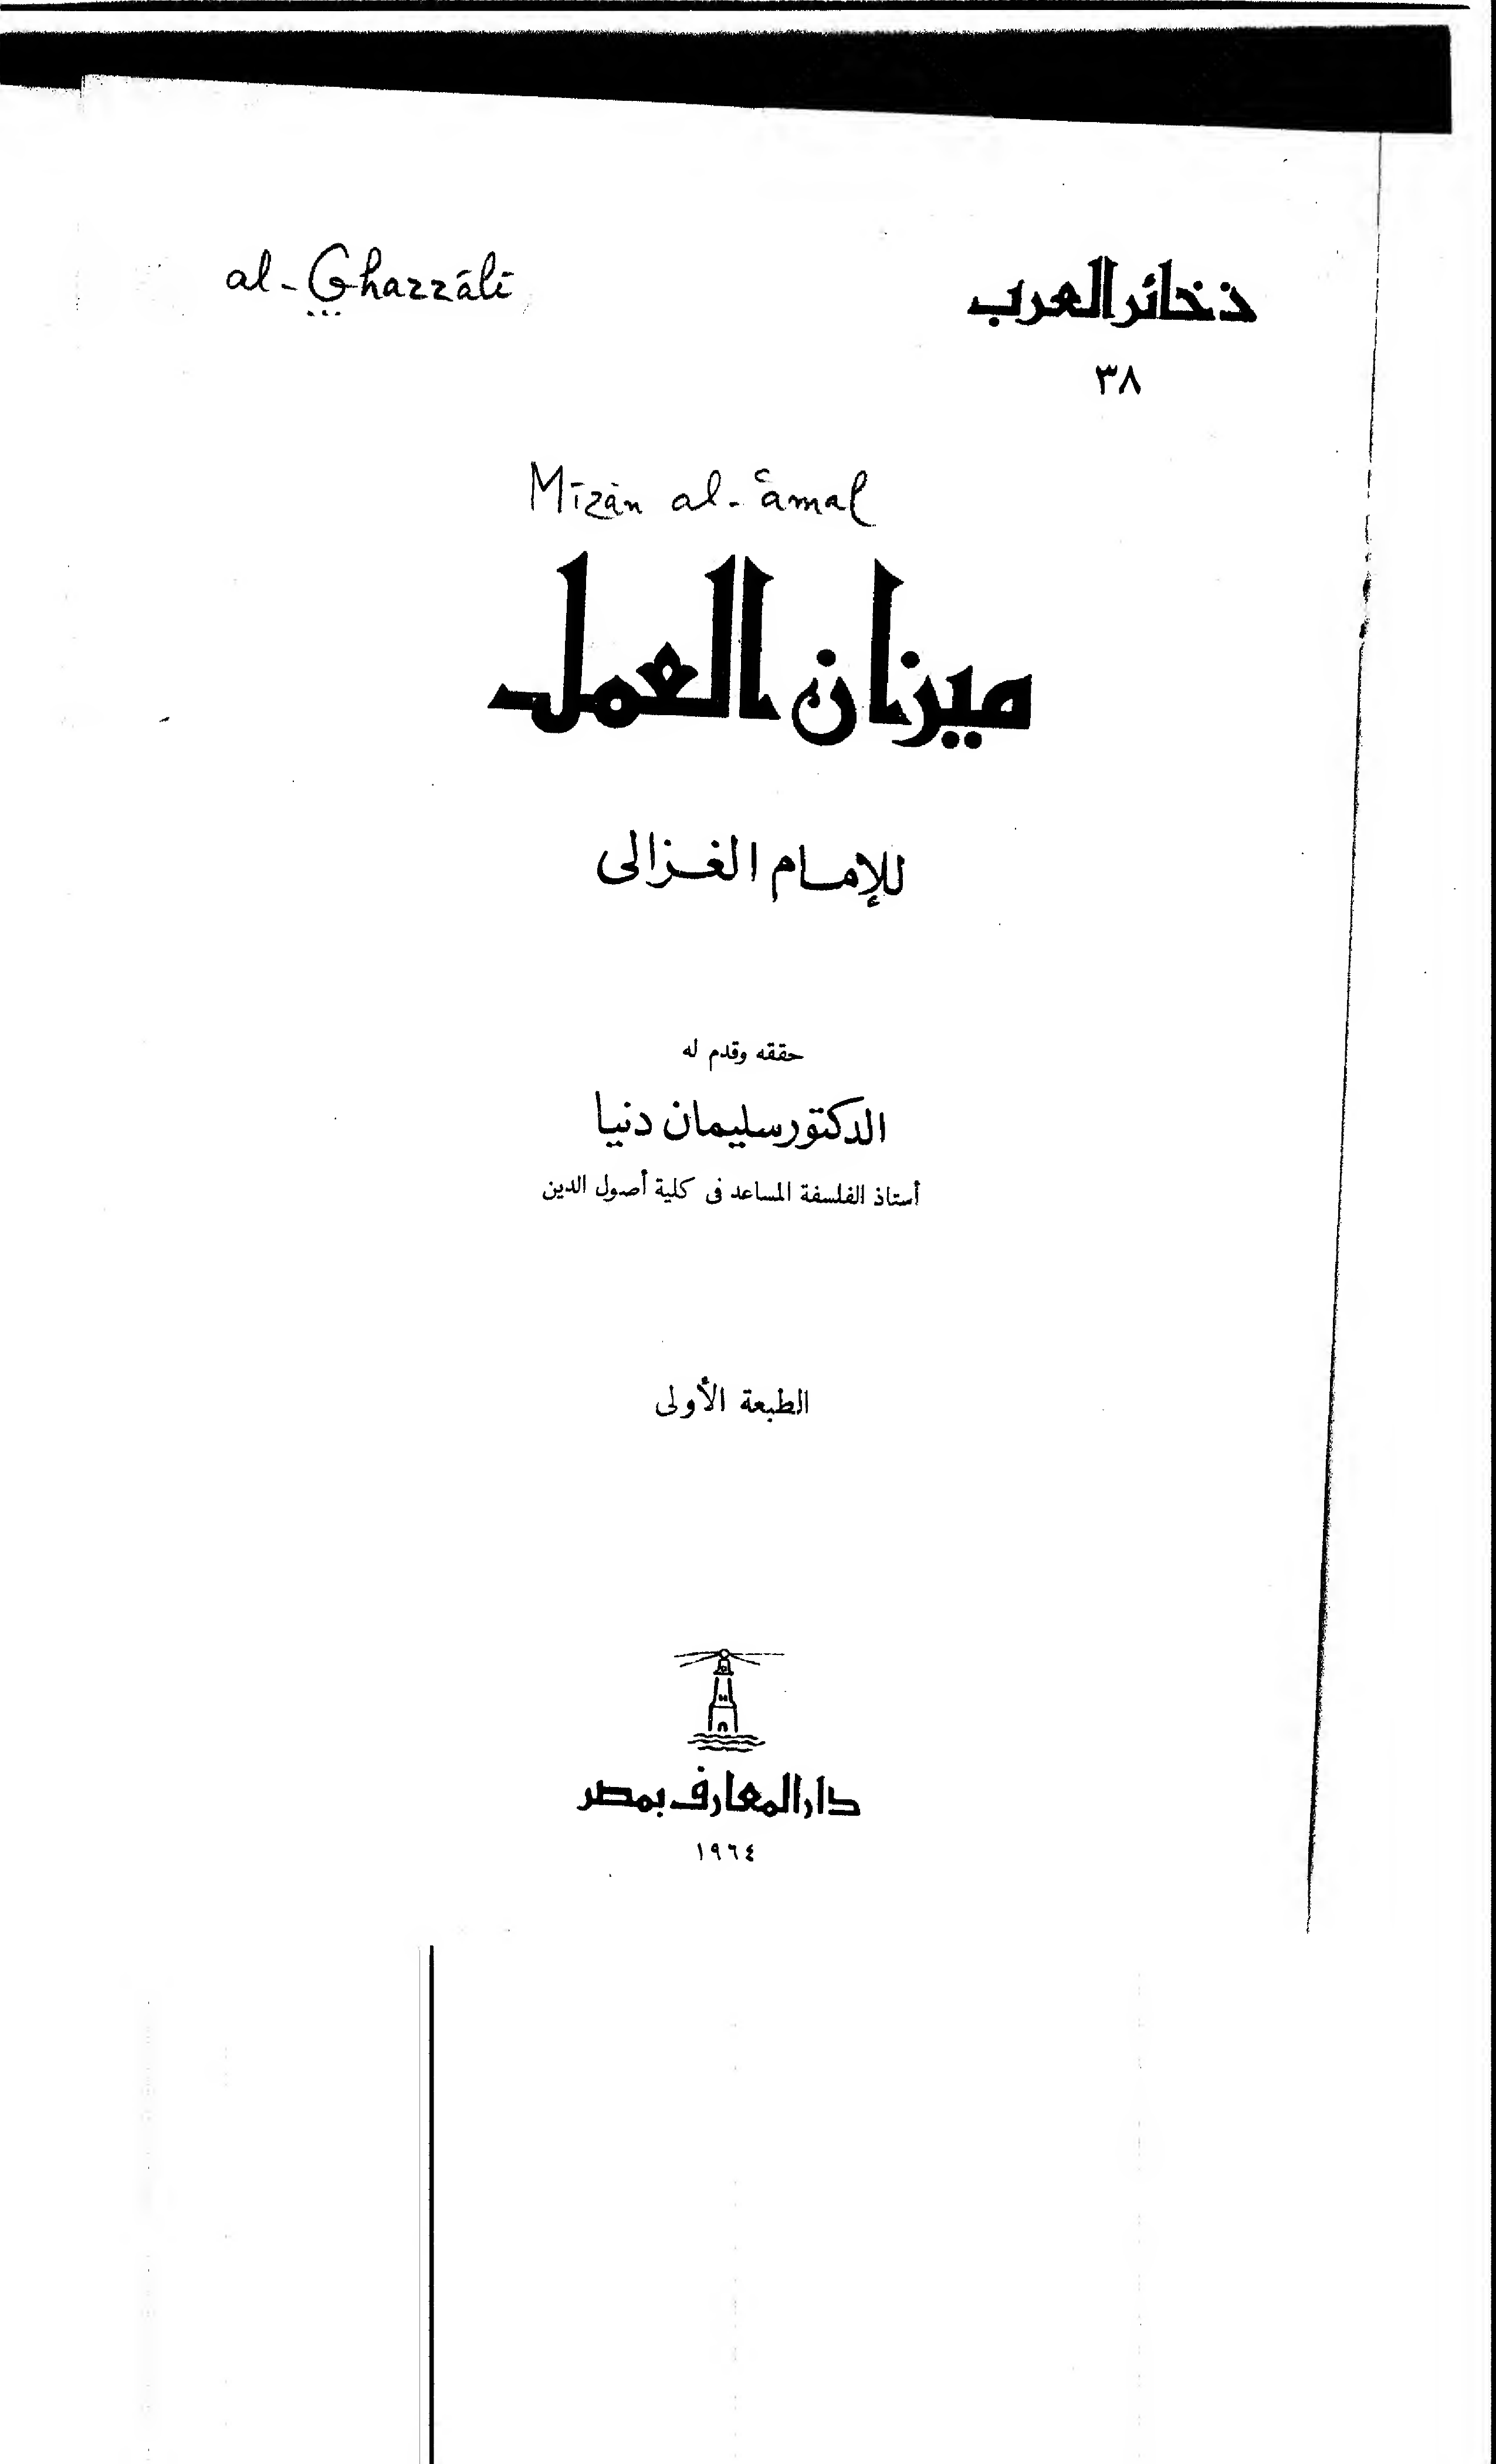 al-Ghazzālī
ذخائر العرب
٣٨
Mīzān al-ʿamal
ميزان العمل
للإمام الغزالى
حققه وقدم له
الدكتور سليمان دنيا
أستاذ الفلسفة المساعد فى كلية أصول الدين
الطبعة الأولى
دار المعارف بمصر
١٩٦٤